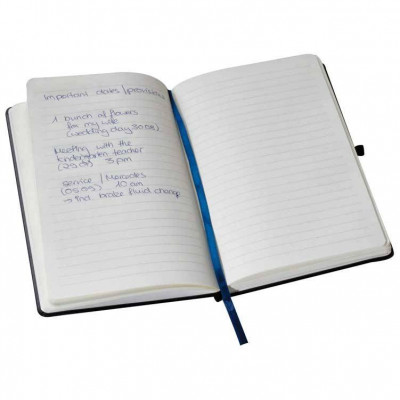 Important dates /
1 bunch of flowers
for my wife
(wedding day 30.08)
Meeting with the
kindergarten teacher
(25.09) 3 pm
Service / Mercedes
(05.05) 10 am
→ incl. brake fluid change